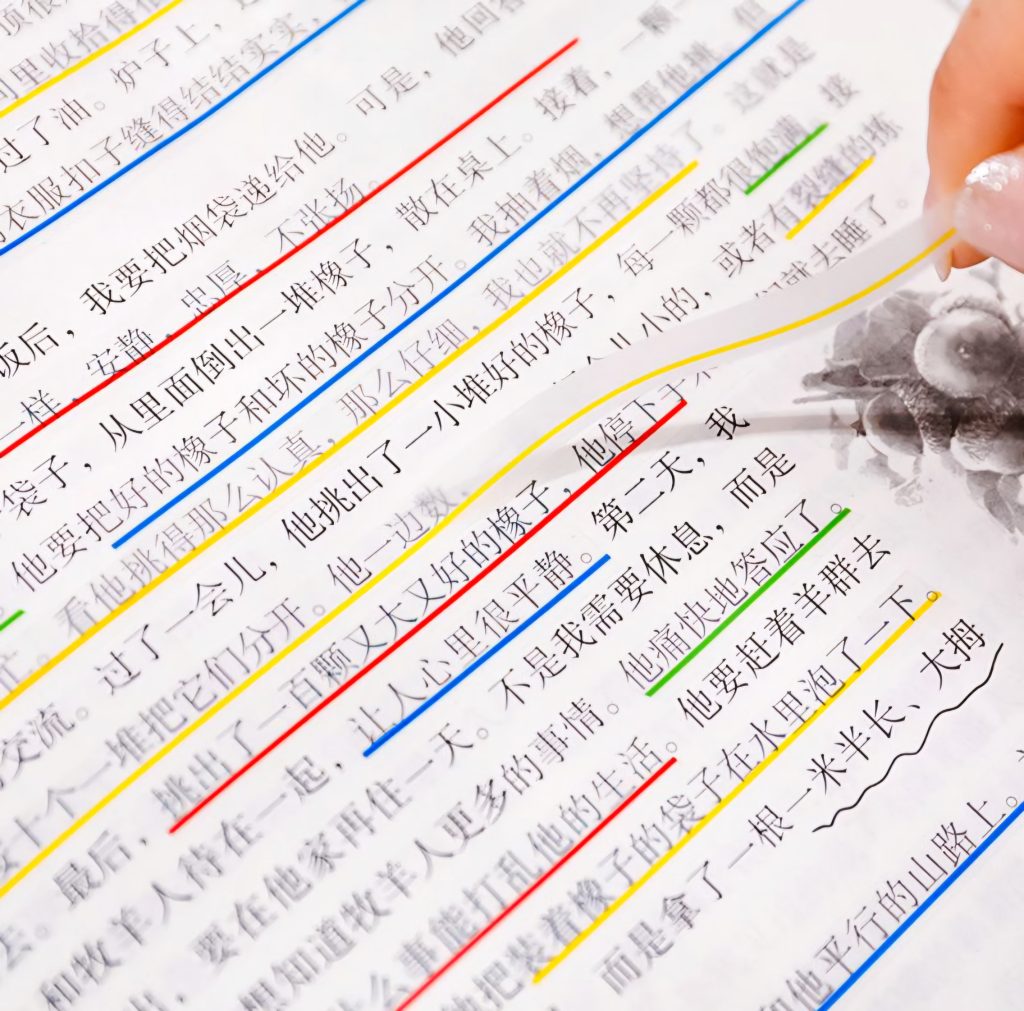 里收拾得
过了油。炉子上,
衣服扣子缝得结结实实,
饭后,我要把烟袋递给他。可是,他回答
一样,安静,忠厚,不张扬。
袋子,从里面倒出一堆橡子,散在桌上。接着,一颗一
他要把好的橡子和坏的橡子分开。我抽着烟,想帮他挑,但
看他挑得那么认真,那么仔细,我也就不再坚持了。这就是
交流。
过了一会儿,他挑出了一小堆好的橡子,每一颗都很饱满,接
十个一堆把它们分开。他一边数,小的,或者有裂缝的拣
去。最后,挑出了一百颗又大又好的橡子,他停下手就去睡了。
和牧羊人待在一起,让人心里很平静。第二天,我
出,要在他家再住一天。不是我需要休息,而是
想知道牧羊人更多的事情。他痛快地答应了。
么事能打乱他的生活。他要赶着羊群去
他把装着橡子的袋子在水里泡了一下。
而是拿了一根一米半长、大拇
和他平行的山路上。